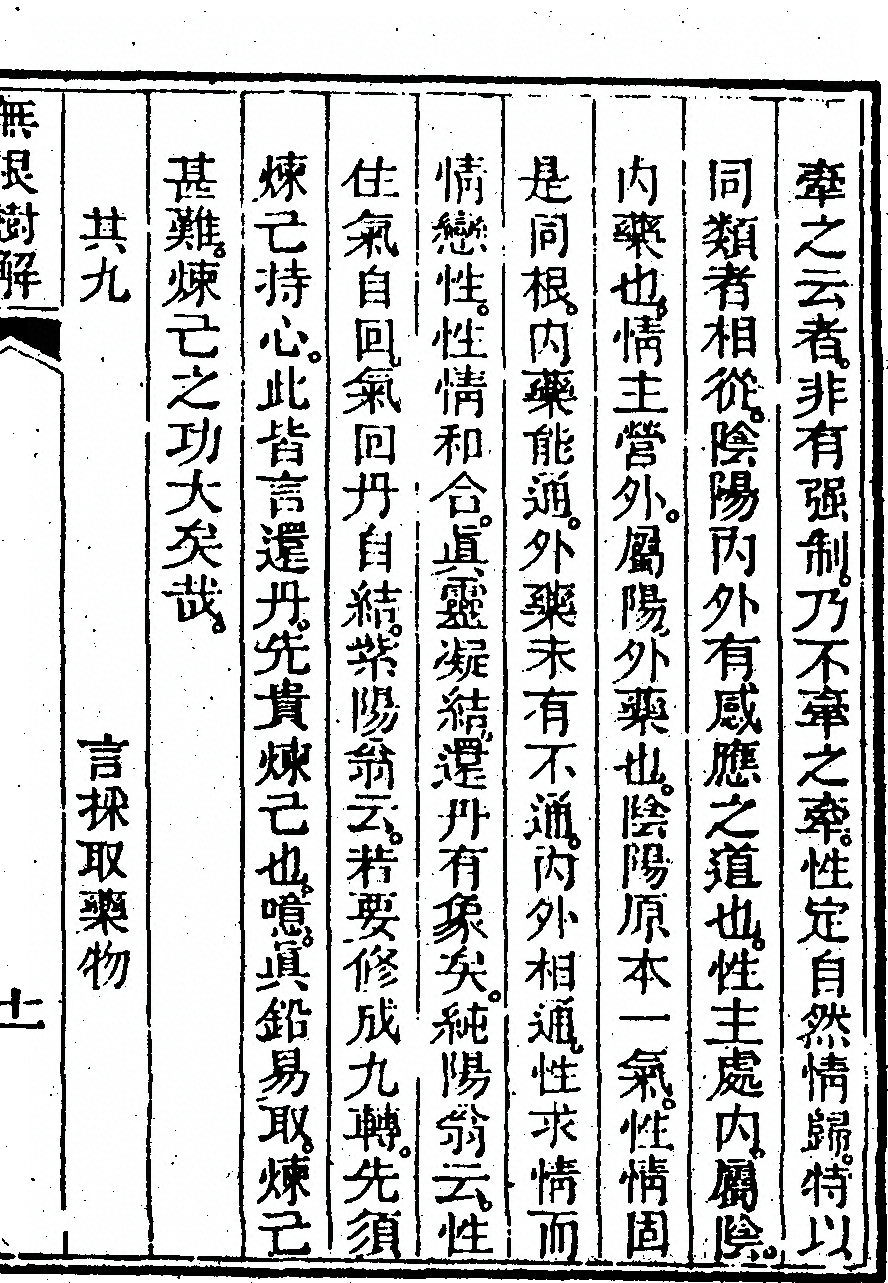 牽之云者。非有强制。乃不牽之牽。性定自然情歸。特以
同類者相從。陰陽內外有感應之道也。性主處內。屬陰。
內藥也。情主營外。屬陽。外藥也。陰陽原本一氣。性情固
是同根。內藥能通。外藥未有不通。內外相通。性求情而
情戀性。性情和合。眞靈凝結。還丹有象矣。純陽翁云。性
住氣自回。氣回丹自結。紫陽翁云。若要修成九轉。先須
煉己持心。此皆言還丹。先貴煉己也。噫。眞鉛易取。煉己
甚難。煉己之功大矣哉。
其九　言採取藥物
無根樹解
十一